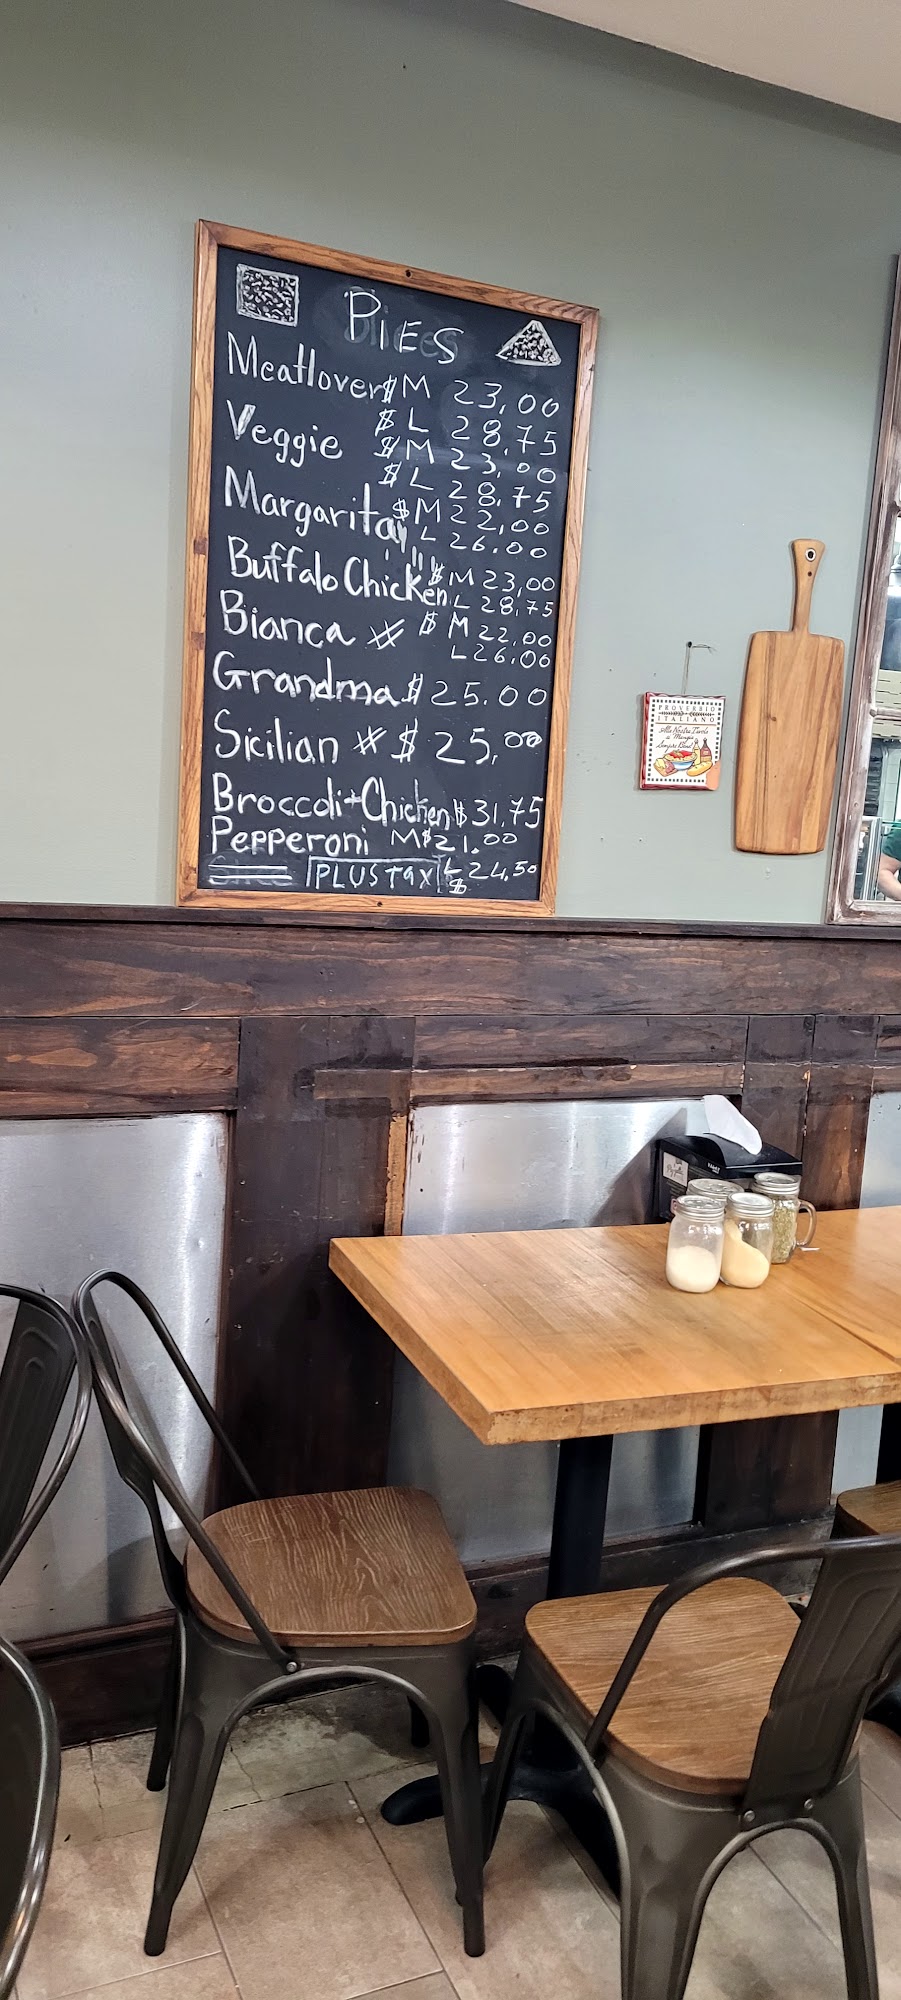 PIES
Meatlover $ M 23,00
$ L 28.75
Veggie $ M 23.00
$ L 28.75
Margarita $ M 22,00
L 26.00
Buffalo Chicken $ M 23,00
L 28,75
Bianca $ M 22.00
L 26.00
Grandma $ 25.00
Sicilian $ 25,00
Broccoli + Chicken $ 31,75
Pepperoni M $ 21.00
PLUS TAX L $ 24.50
PROVERBIO
ITALIANO
Alla Nostra Tavola
si Mangia
Sempre Bene!